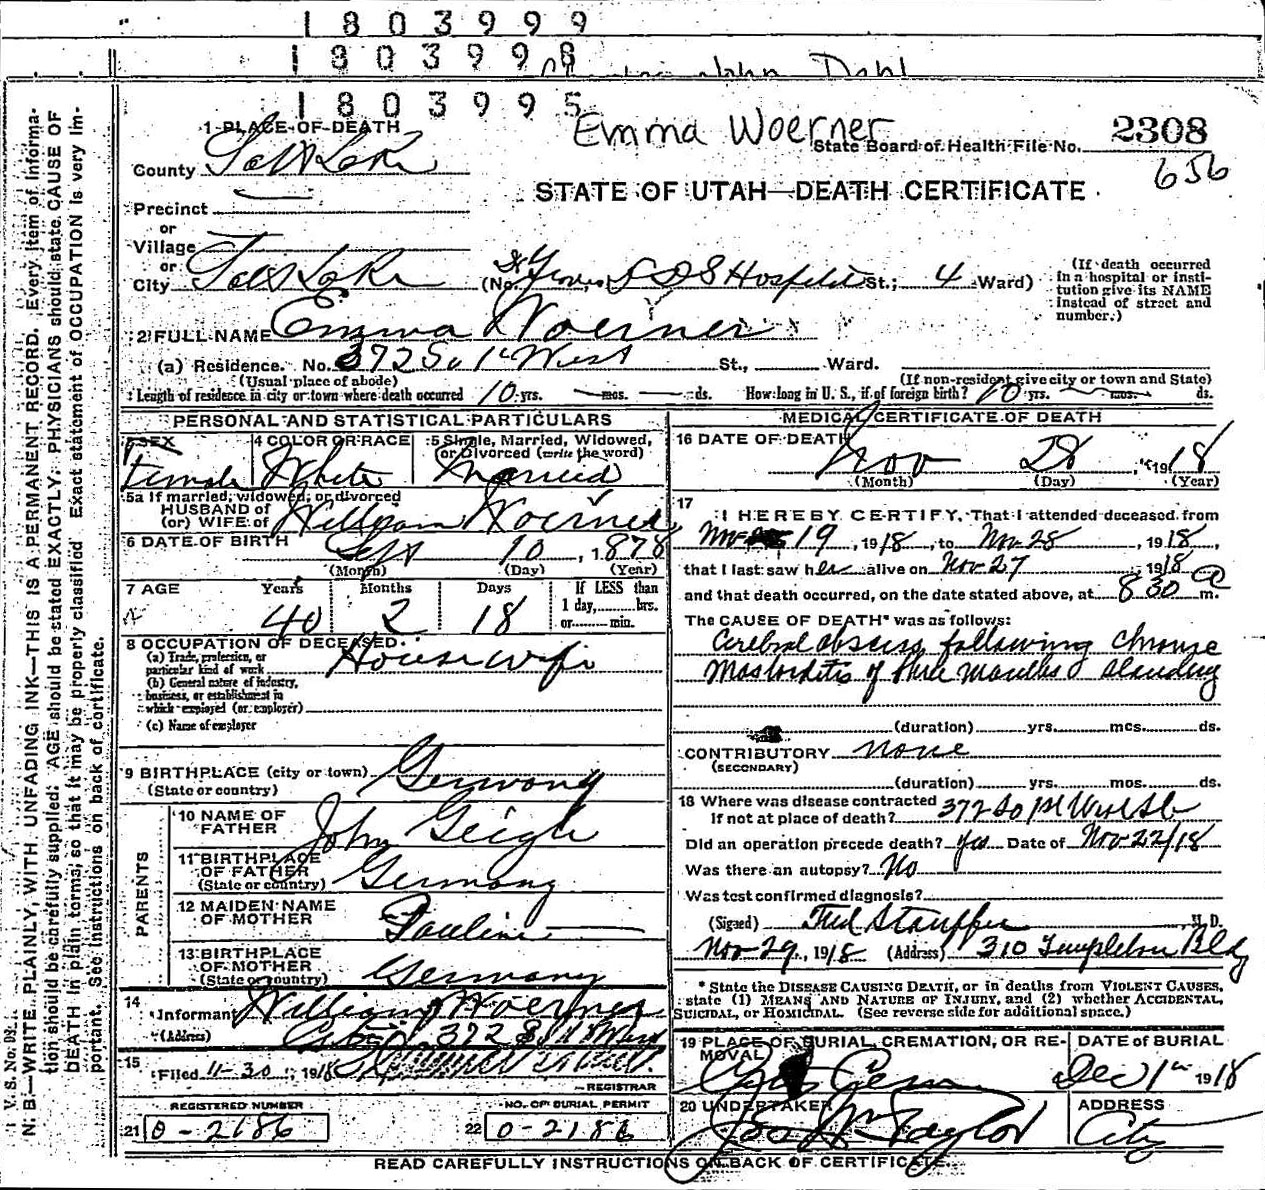 1803999
1803998
John Dahl
1803995
Emma Woerner
State Board of Health File No. 2308
656
STATE OF UTAH—DEATH CERTIFICATE
1 PLACE OF DEATH
County Salt Lake
Precinct
or
Village
or
City Salt Lake (No. L D S Hospital St.; 4 Ward)
(If death occurred in a hospital or institution give its NAME instead of street and number.)
2 FULL NAME Emma Woerner
(a) Residence. No. 372 So 1st West St., Ward.
(Usual place of abode) (If non-resident give city or town and State)
Length of residence in city or town where death occurred 10 yrs. mos. ds. How long in U. S., if of foreign birth? 10 yrs. mos. ds.
PERSONAL AND STATISTICAL PARTICULARS
SEX Female
4 COLOR OR RACE White
5 Single, Married, Widowed, or Divorced (write the word) Married
5a If married, widowed, or divorced
HUSBAND of
(or) WIFE of William Woerner
6 DATE OF BIRTH Sept 10, 1878
(Month) (Day) (Year)
7 AGE Years 40 Months 2 Days 18 If LESS than 1 day, hrs. or min.
8 OCCUPATION OF DECEASED Housewife
(a) Trade, profession, or particular kind of work
(b) General nature of industry, business, or establishment in which employed (or employer)
(c) Name of employer
9 BIRTHPLACE (city or town) Germany
(State or country)
PARENTS
10 NAME OF FATHER John Geigle
11 BIRTHPLACE OF FATHER (State or country) Germany
12 MAIDEN NAME OF MOTHER Pauline
13 BIRTHPLACE OF MOTHER (State or country) Germany
14 Informant William Woerner
(Address) City 372 So 1st West
15 Filed 11-30, 1918
REGISTRAR
REGISTERED NUMBER NO. OF BURIAL PERMIT
21 0-2186 22 0-2186
MEDICAL CERTIFICATE OF DEATH
16 DATE OF DEATH Nov 28, 1918
(Month) (Day) (Year)
17 I HEREBY CERTIFY, That I attended deceased from
Nov 19, 1918, to Nov 28, 1918
that I last saw her alive on Nov 27, 1918
and that death occurred, on the date stated above, at 8 30 a m.
The CAUSE OF DEATH* was as follows:
Cerebral abscess following chronic
Mastoiditis of three months standing
(duration) yrs. mos. ds.
CONTRIBUTORY none
(SECONDARY)
(duration) yrs. mos. ds.
18 Where was disease contracted 372 So 1st West St
If not at place of death?
Did an operation precede death? yes Date of Nov 22/18
Was there an autopsy? No
Was test confirmed diagnosis?
(Signed) Fred Stauffer, M. D.
Nov 29, 1918 (Address) 310 Templeton Bldg
* State the DISEASE CAUSING DEATH, or in deaths from VIOLENT CAUSES,
state (1) MEANS AND NATURE OF INJURY, and (2) whether ACCIDENTAL,
SUICIDAL, or HOMICIDAL. (See reverse side for additional space.)
19 PLACE OF BURIAL, CREMATION, OR REMOVAL City Cem
DATE of BURIAL Dec 1st 1918
20 UNDERTAKER Jos Wm Taylor
ADDRESS City
READ CAREFULLY INSTRUCTIONS ON BACK OF CERTIFICATE.
N. B.—WRITE PLAINLY, WITH UNFADING INK—THIS IS A PERMANENT RECORD. Every item of information should be carefully supplied. AGE should be stated EXACTLY. PHYSICIANS should state CAUSE OF DEATH in plain terms, so that it may be properly classified. Exact statement of OCCUPATION is very important. See instructions on back of certificate.